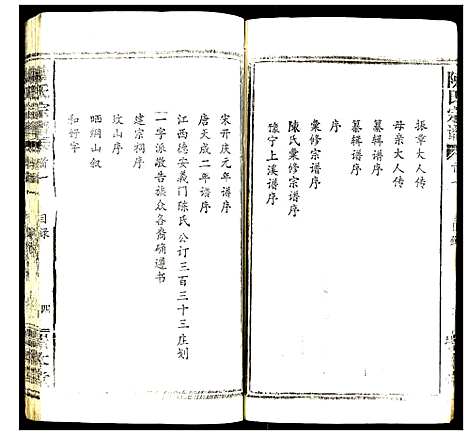 陳氏宗譜
振章大人传
母亲大人传
纂辑谱序
纂辑谱序
序
彙修宗谱序
陳氏彙修宗谱序
豫宁上溪谱序
宋开庆元年谱序
唐天成二年谱序
江西德安義门陈氏公订三百三十三庄划
一字派敬告族众各裔确遵书
建宗祠序
坟山序
晒綱山叙
和好字
目录
四